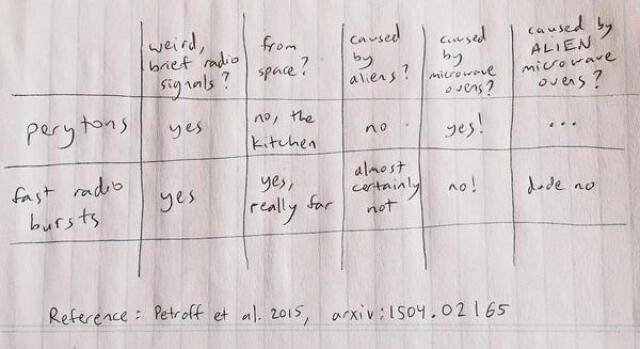 weird,
brief radio
signals?
from
space?
caused
by
aliens?
caused
by
microwave
ovens?
caused by
ALIEN
microwave
ovens?
perytons
yes
no, the
kitchen
no
yes!
...
fast radio
bursts
yes
yes,
really far
almost
certainly
not
no!
dude no
Reference: Petroff et al. 2015, arxiv:1504.02165